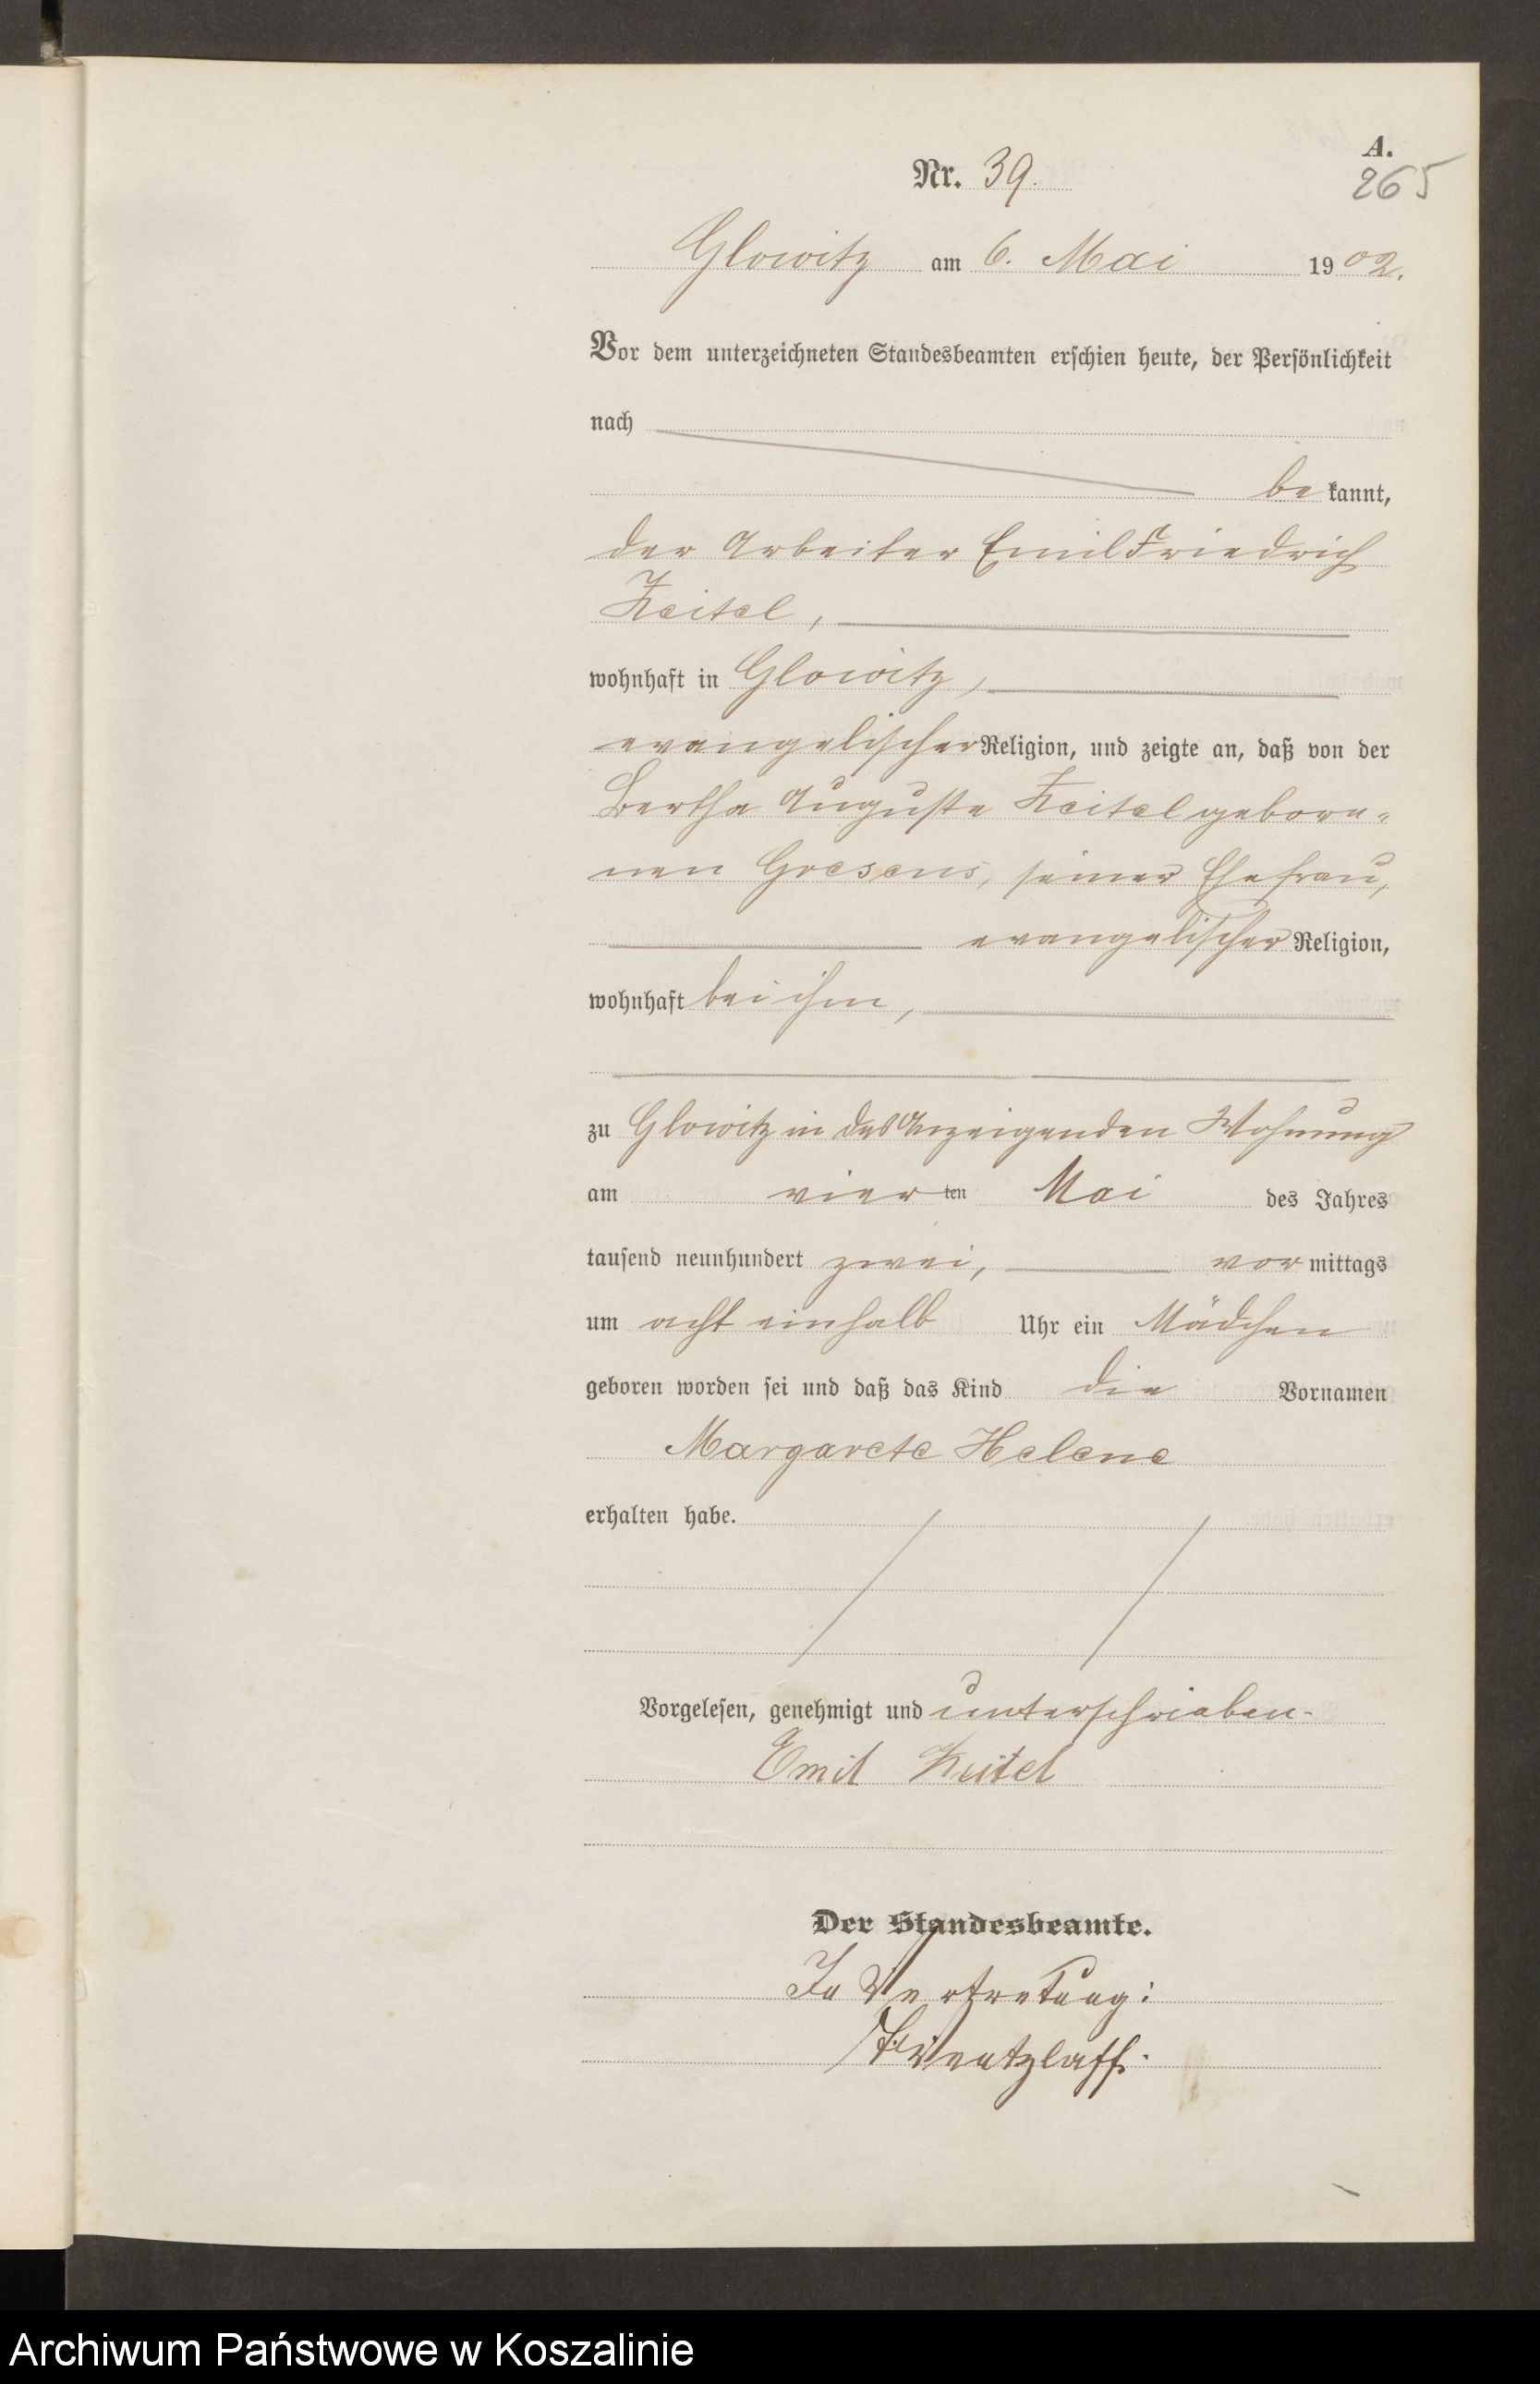 A.
Nr. 39.
265
Glowitz am 6. Mai 1902.
Vor dem unterzeichneten Standesbeamten erschien heute, der Persönlichkeit
nach
bekannt,
der Arbeiter Emil Friedrich
Keitel,
wohnhaft in Glowitz,
evangelischer Religion, und zeigte an, daß von der
Bertha Auguste Keitel gebore-
nen Gresens, seiner Ehefrau,
evangelischer Religion,
wohnhaft bei ihm,
zu Glowitz in des Anzeigenden Wohnung
am vierten Mai des Jahres
tausend neunhundert zwei, vormittags
um acht einhalb Uhr ein Mädchen
geboren worden sei und daß das Kind die Vornamen
Margarete Helene
erhalten habe.
Vorgelesen, genehmigt und unterschrieben.
Emil Keitel
Der Standesbeamte.
In Vertretung:
Wentzlaff.
Archiwum Państwowe w Koszalinie